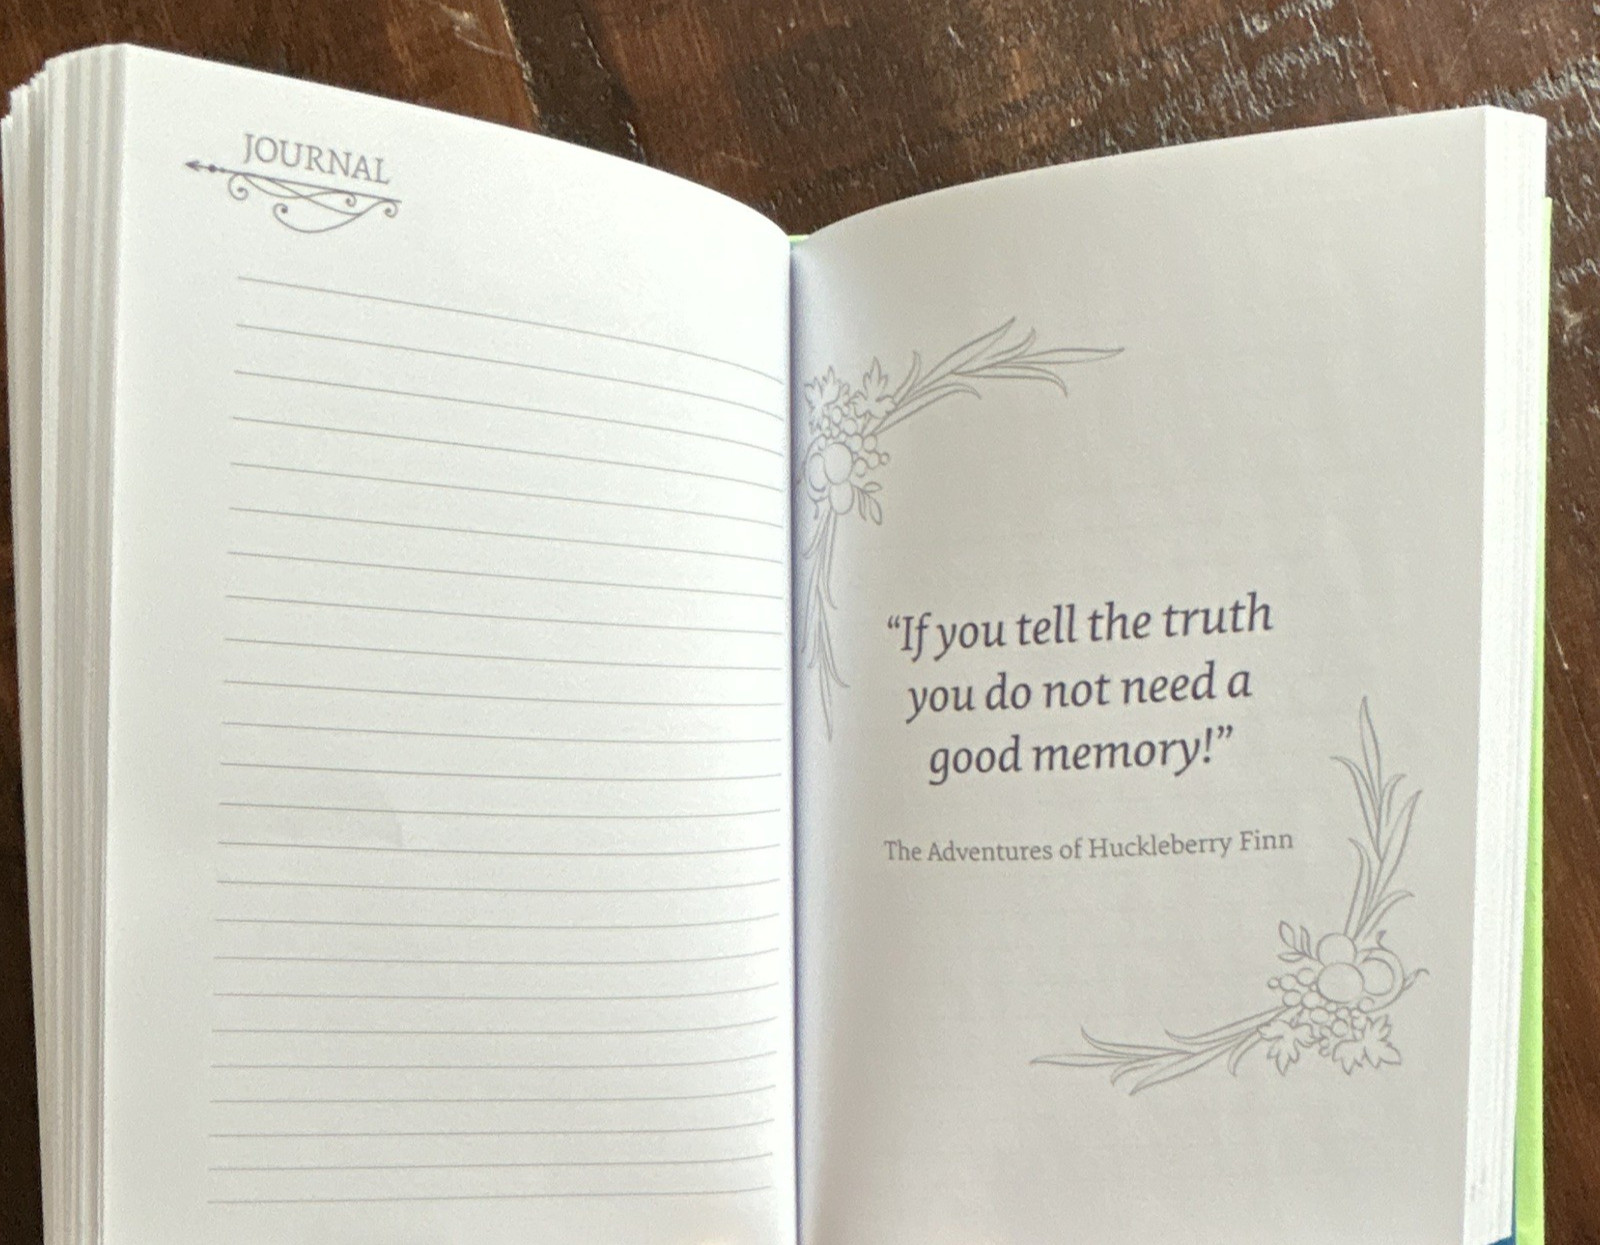 JOURNAL
“If you tell the truth
you do not need a
good memory!”
The Adventures of Huckleberry Finn